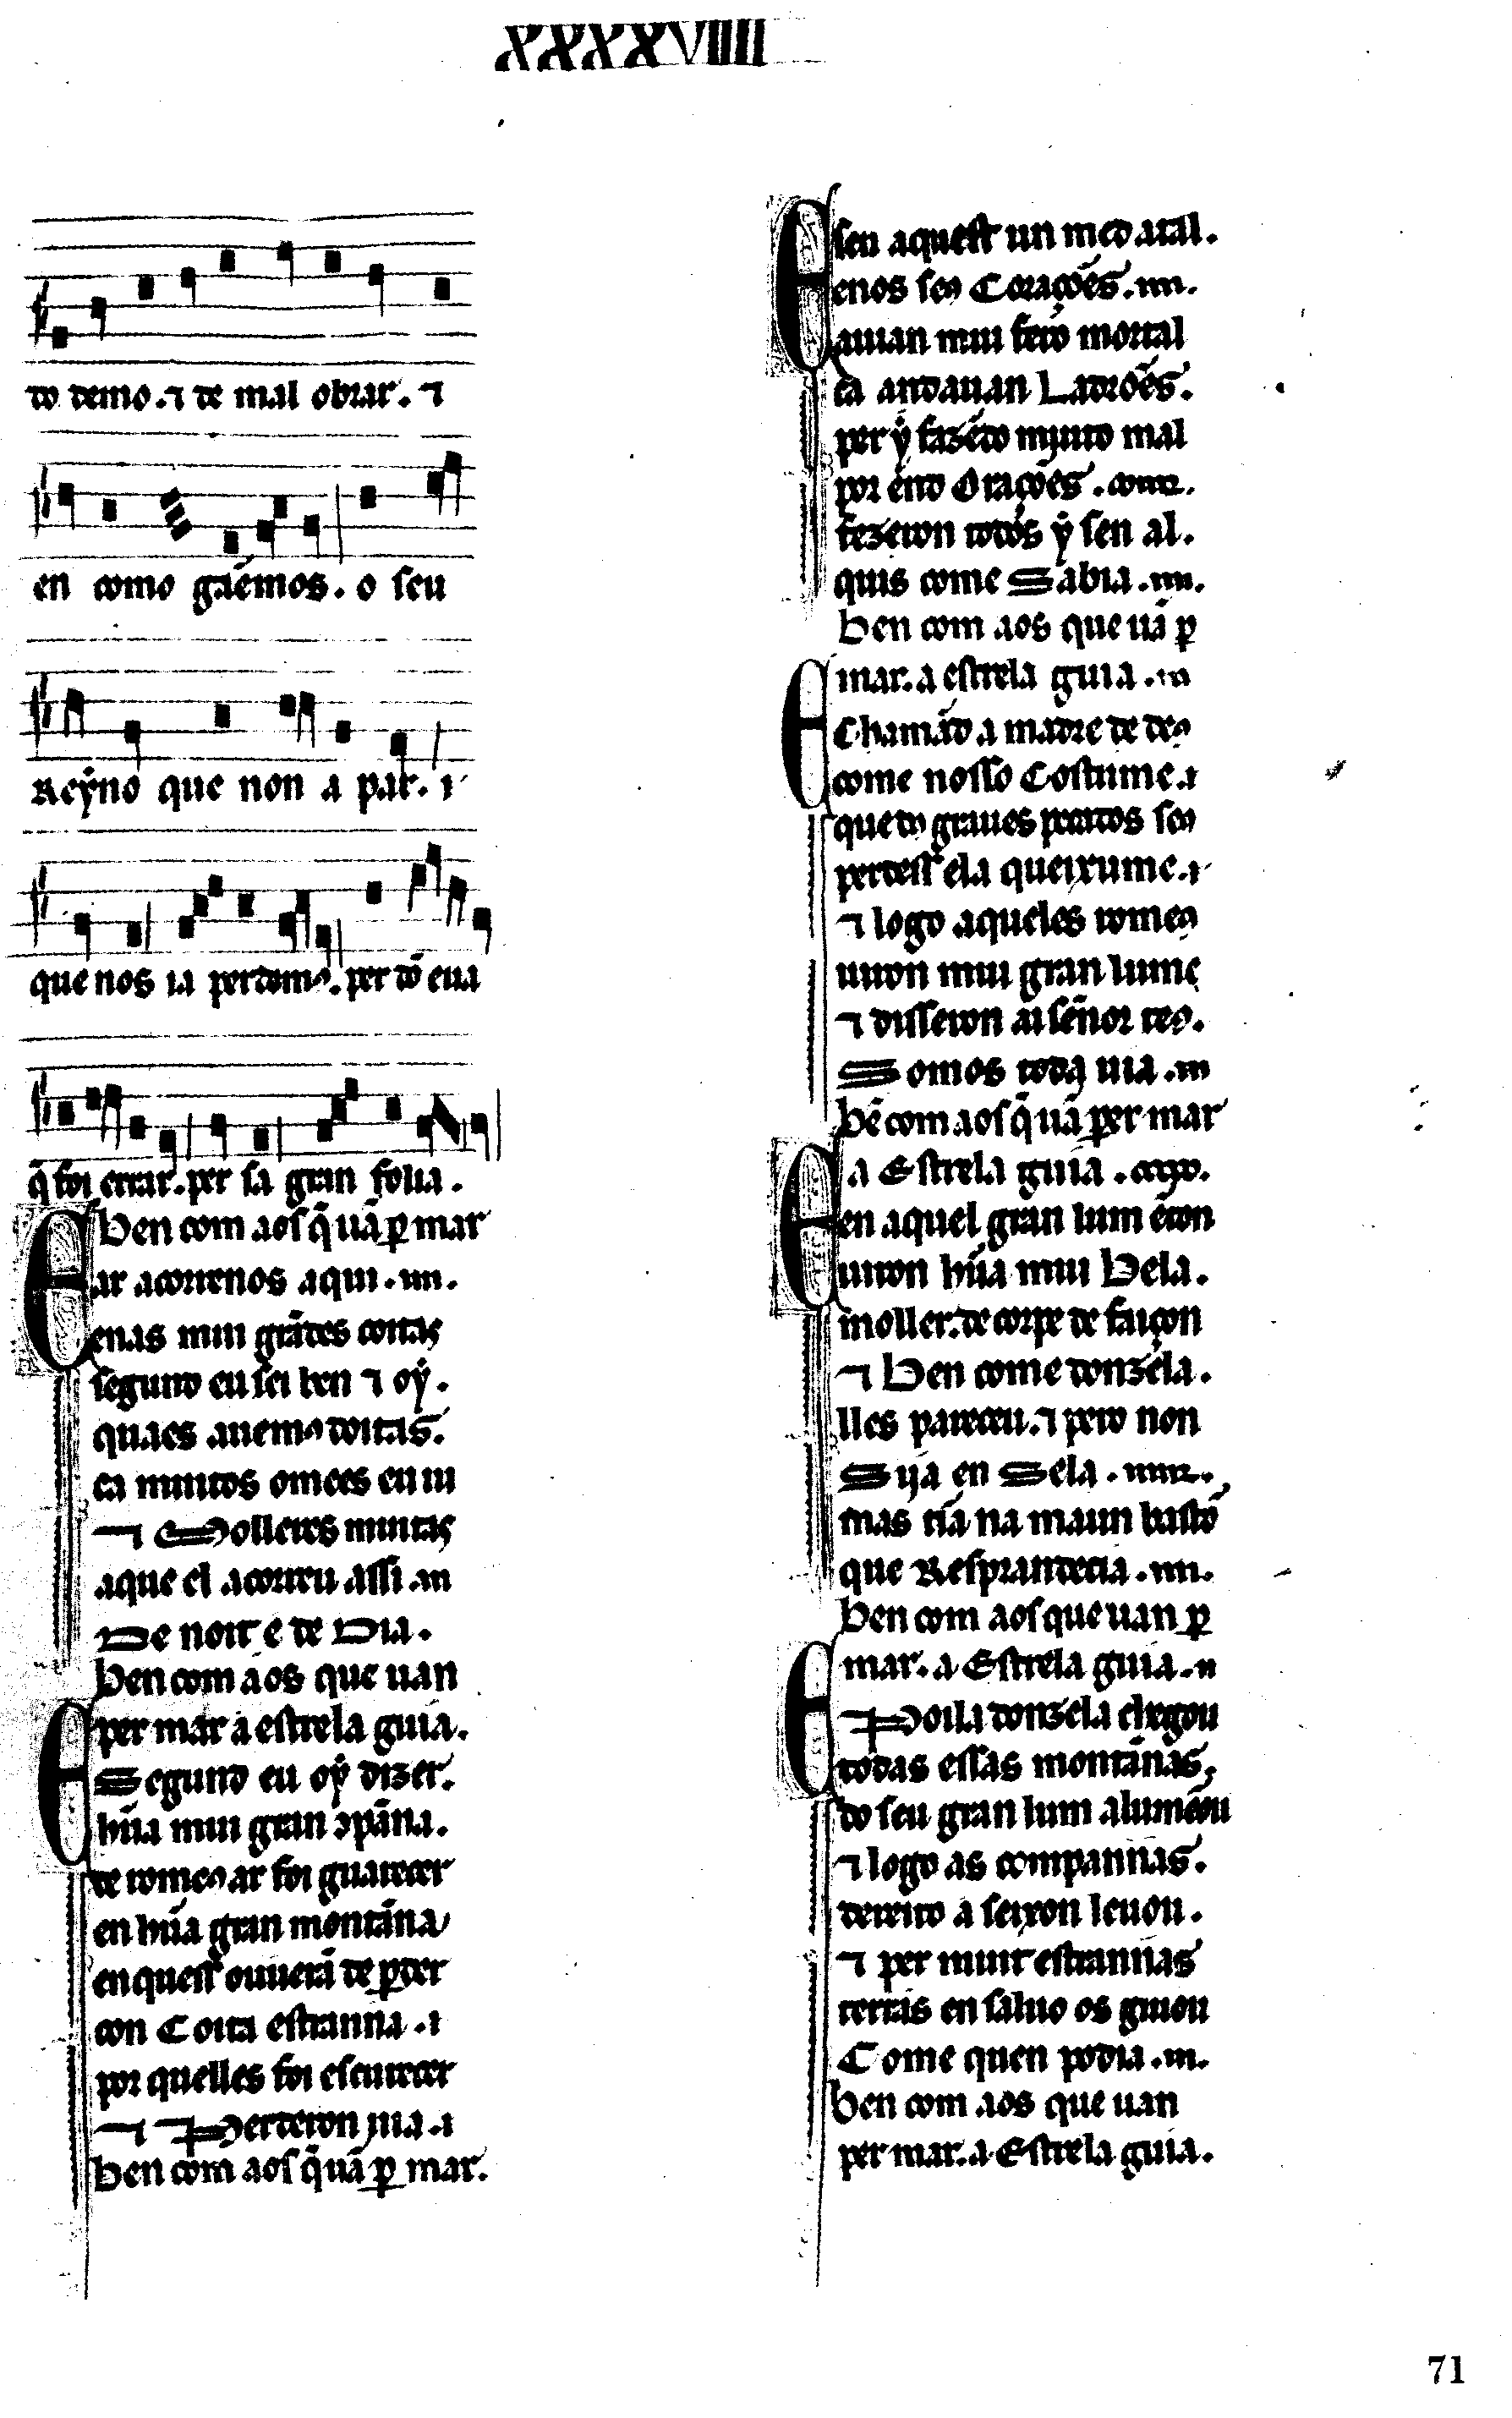 XXXXVIIII
do demo. ⁊ de mal obrar. ⁊
en como gãemos. o seu
Reẏno que non a par. ⁊
que nos ia perdemos. per dõ eua
q̃ foi errar. per sa gran folia.
Ben com aos q̃ uã ꝑ mar
Ear acorrenos aqui. ⁊
enas mui grãdes coitas
segund eu sei ben ⁊ oẏ.
quaes auemos doitas.
ca muitos omees eu ui
⁊ Molleres muitas
aque el acorreu assi. ⁊
De noit e de Dia.
Ben com aos que uan
per mar a estrela guia.
Segund eu oẏ dizer.
E hũa mui gran ꝯpãna.
de romeus ar foi guarecer
en hũa gran montãna
en quess ouuerã de ꝑder
con Coita estranna. ⁊
por quelles foi escurecer
⁊ Perderon uia. ⁊
Ben com aos q̃ uã ꝑ mar.
Esen aquest un med atal.
enos seus Corações.
auian mui fero mortal
ca andauan Ladrões.
per ẏ fazẽdo muito mal
por end Orações.
fezeron todos ẏ sen al.
quis come Sabia.
Ben com aos que uã ꝑ
mar. a estrela guia.
E Chamãd a madre de deus
come nosso Costume. ⁊
que dos graues pecados seus
perdess ela queixume. ⁊
⁊ logo aqueles romeus
uiron mui gran lume
⁊ disseron ai señor teus.
Somos toda uia.
Bẽ com aos q̃ uã per mar
a Estrela guia.
E en aquel gran lum ẽton
uiron hũa mui Bela.
moller. de corpe de faiçon
⁊ Ben come donzela.
lles pareceu. ⁊ pero non
Sija en Sela.
mas tĩa na maun bastõ
que Resprandecia.
Ben com aos que uan ꝑ
mar. a Estrela guia.
E Poila donzela chegou
todas essas montãnas.
do seu gran lum alumẽou
⁊ logo as compannas.
dereito a seixon leuou.
⁊ per muit estrannas
terras en saluo os guiou
Come quen podia.
Ben com aos que uan
per mar. a Estrela guia.
71